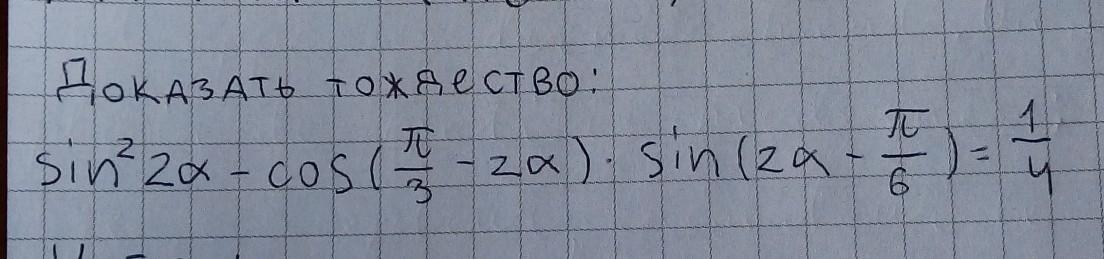 Доказать тождество:
sin² 2α - cos(π/3 - 2α) · sin(2α - π/6) = 1/4